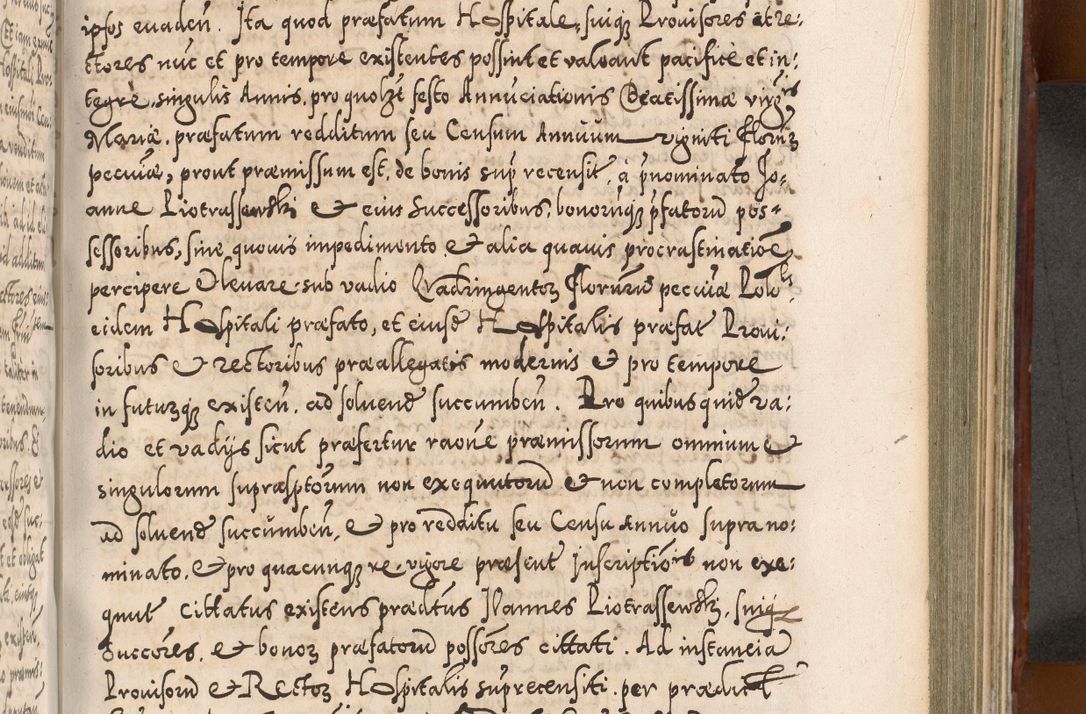 ipsos euadeñ. Ita quod præfatum Hospitale, suiqꝫ Prouisores et re-
ctores nūc et pro tempore existentes possint et valeant pacifice et in:
tegrè, singulis Annis, pro quolꝫt festo Annūciationis Beatissimæ virgis
Mariæ. præfatum redditum seu Censum Annuum viginti Florꝫ
pecuiæ, prout præmissum est, de bonis sup recensit, à pnominato Jo:
anne Piotrassewski et eius Successoribus, bonorūqꝫ pfatorū pos:
sessoribus, sine quouis impedimento et alia quauis procrastinatioē
percipere & leuare sub vadio Quadringentoꝫ Florūrū pecuiæ Polo
eidem Hospitali præfato, et eiusd Hospitalis præfat Proui:
soribus & rectoribus præallegatis modernis & pro tempore
in futurꝫqꝫ existeñ. ad soluend succumbeñ. Pro quibus quid va:
dio et vadijs sicut præfertur raone præmissorum omnium &
singulorum suprascptorum non exequutorū & non completorum
ad soluend succūmbeñ, & pro redditu seu Censu Annuo supra no:
minato, & pro quacunqꝫ re vigore præsent Inscriptiois non exe:
quut cittatus existens prædtus Joannes Piotrassewski, suiqꝫ
succores, & bonoꝫ præfatorū possores cittati. Ad instancia
Prouisorū & Rectoꝫ Hospitalis suprecensiti per prædict